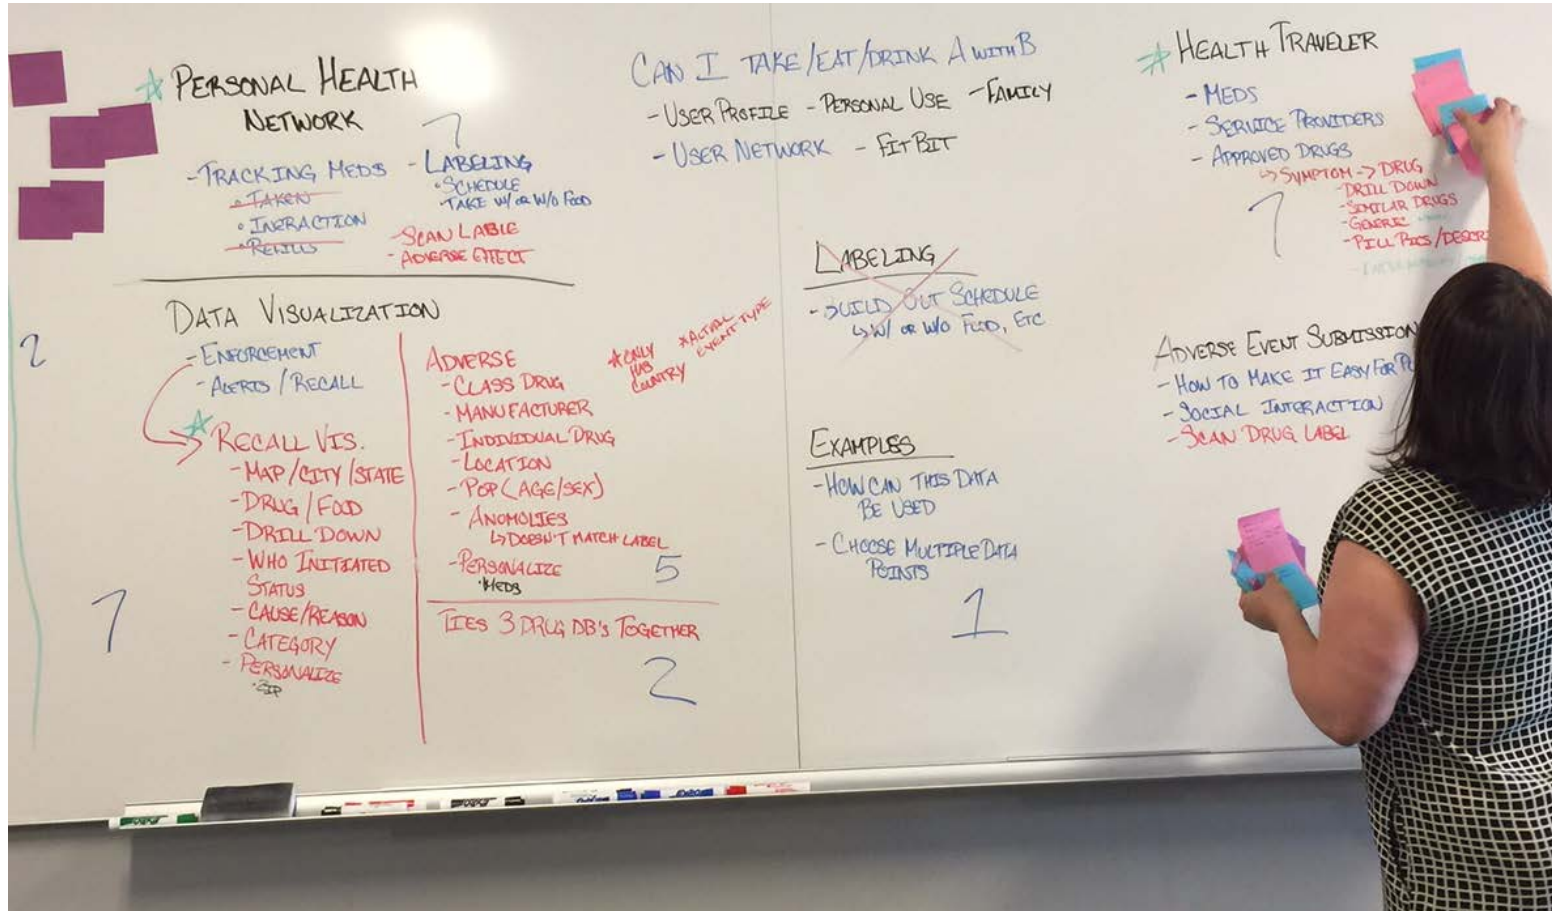 ☆ PERSONAL HEALTH
NETWORK
7
- TRACKING MEDS
• TAKEN
• INERACTION
• REFILLS
- LABELING
• SCHEDULE
• TAKE W/ OR W/O FOOD
- SCAN LABLE
- ADVERSE EFFECT
DATA VISUALIZATION
- ENFORCEMENT
- ALERTS / RECALL
☆ RECALL VIS.
- MAP/CITY/STATE
- DRUG/FOOD
- DRILL DOWN
- WHO INITIATED
STATUS
- CAUSE/REASON
- CATEGORY
- PERSONALIZE
• ZIP
2
7
ADVERSE
- CLASS DRUG
- MANUFACTURER
- INDIVIDUAL DRUG
- LOCATION
- POP (AGE/SEX)
- ANOMOLIES
↳ DOESN'T MATCH LABEL
- PERSONALIZE
• MEDS
* ONLY
HAS
COUNTRY
* ACTUAL
EVENT TYPE
5
TIES 3 DRUG DB'S TOGETHER
2
CAN I TAKE/EAT/DRINK A WITH B
- USER PROFILE - PERSONAL USE - FAMILY
- USER NETWORK - FITBIT
LABELING
- BUILD OUT SCHEDULE
↳ W/ OR W/O FOOD, ETC
EXAMPLES
- HOW CAN THIS DATA
BE USED
- CHOOSE MULTIPLE DATA
POINTS
1
☆ HEALTH TRAVELER
- MEDS
- SERVICE PROVIDERS
- APPROVED DRUGS
↳ SYMPTOM -> DRUG
- DRILL DOWN
- SIMILAR DRUGS
- GENERIC
- PILL PICS / DESCRI
7
ADVERSE EVENT SUBMISSION
- HOW TO MAKE IT EASY FOR
- SOCIAL INTERACTION
- SCAN DRUG LABEL